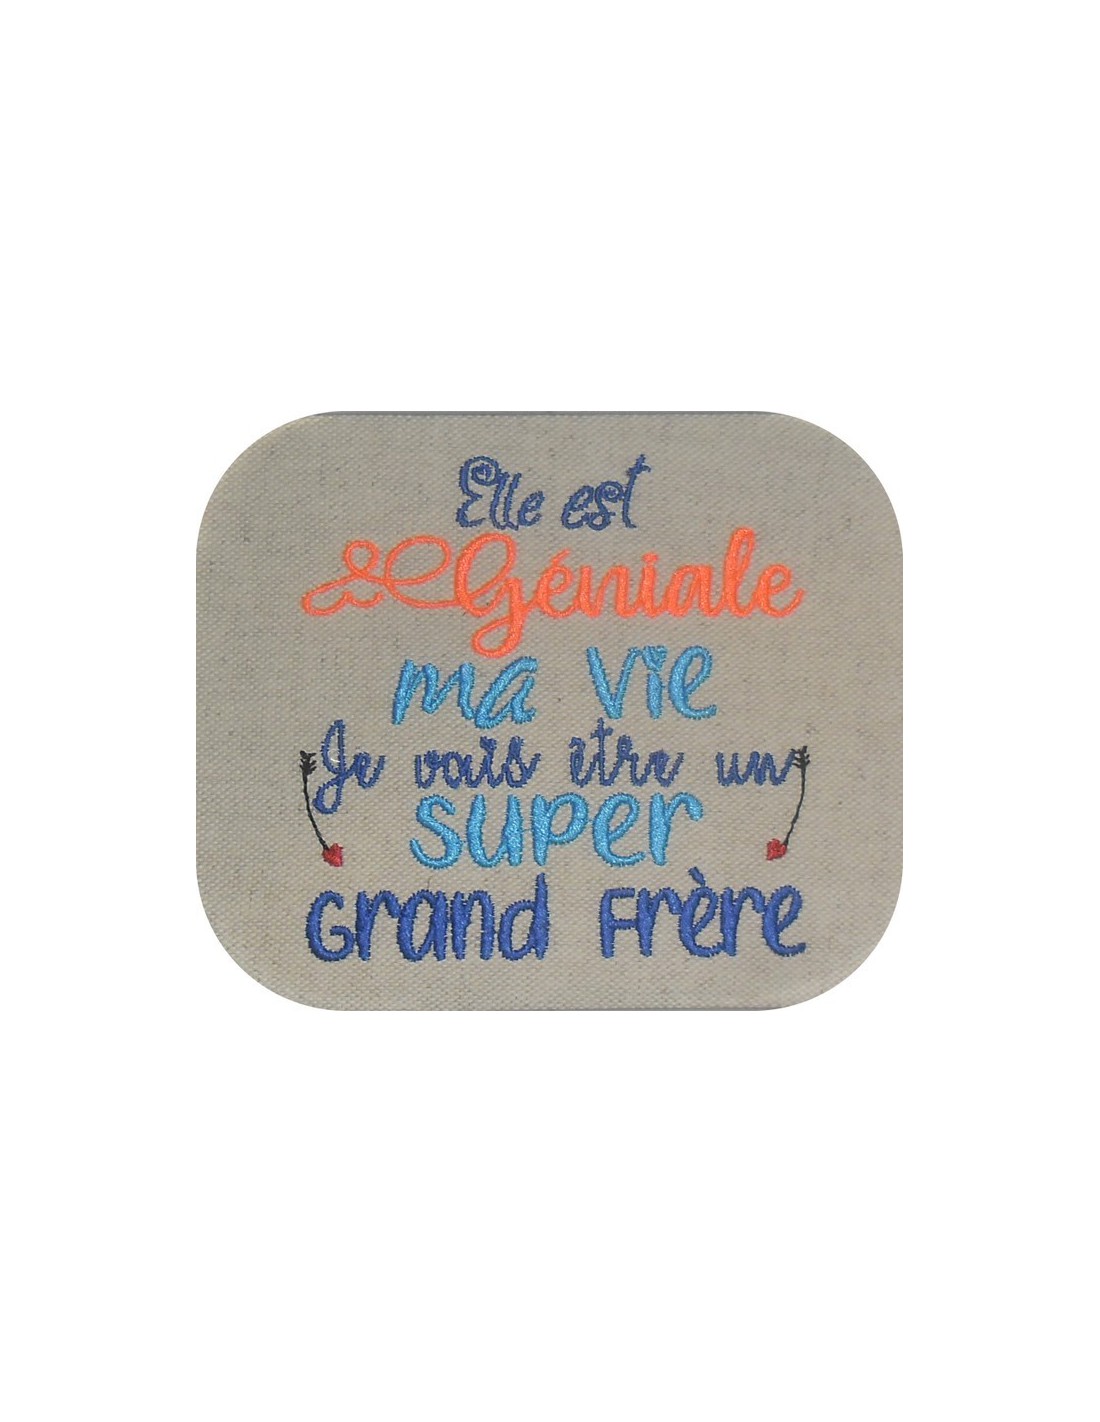 Elle est
Géniale
ma vie
Je vais être un
super
Grand Frère